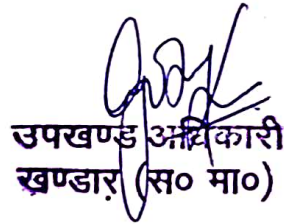 उपखण्ड अधिकारी
खण्डार (स० मा०)